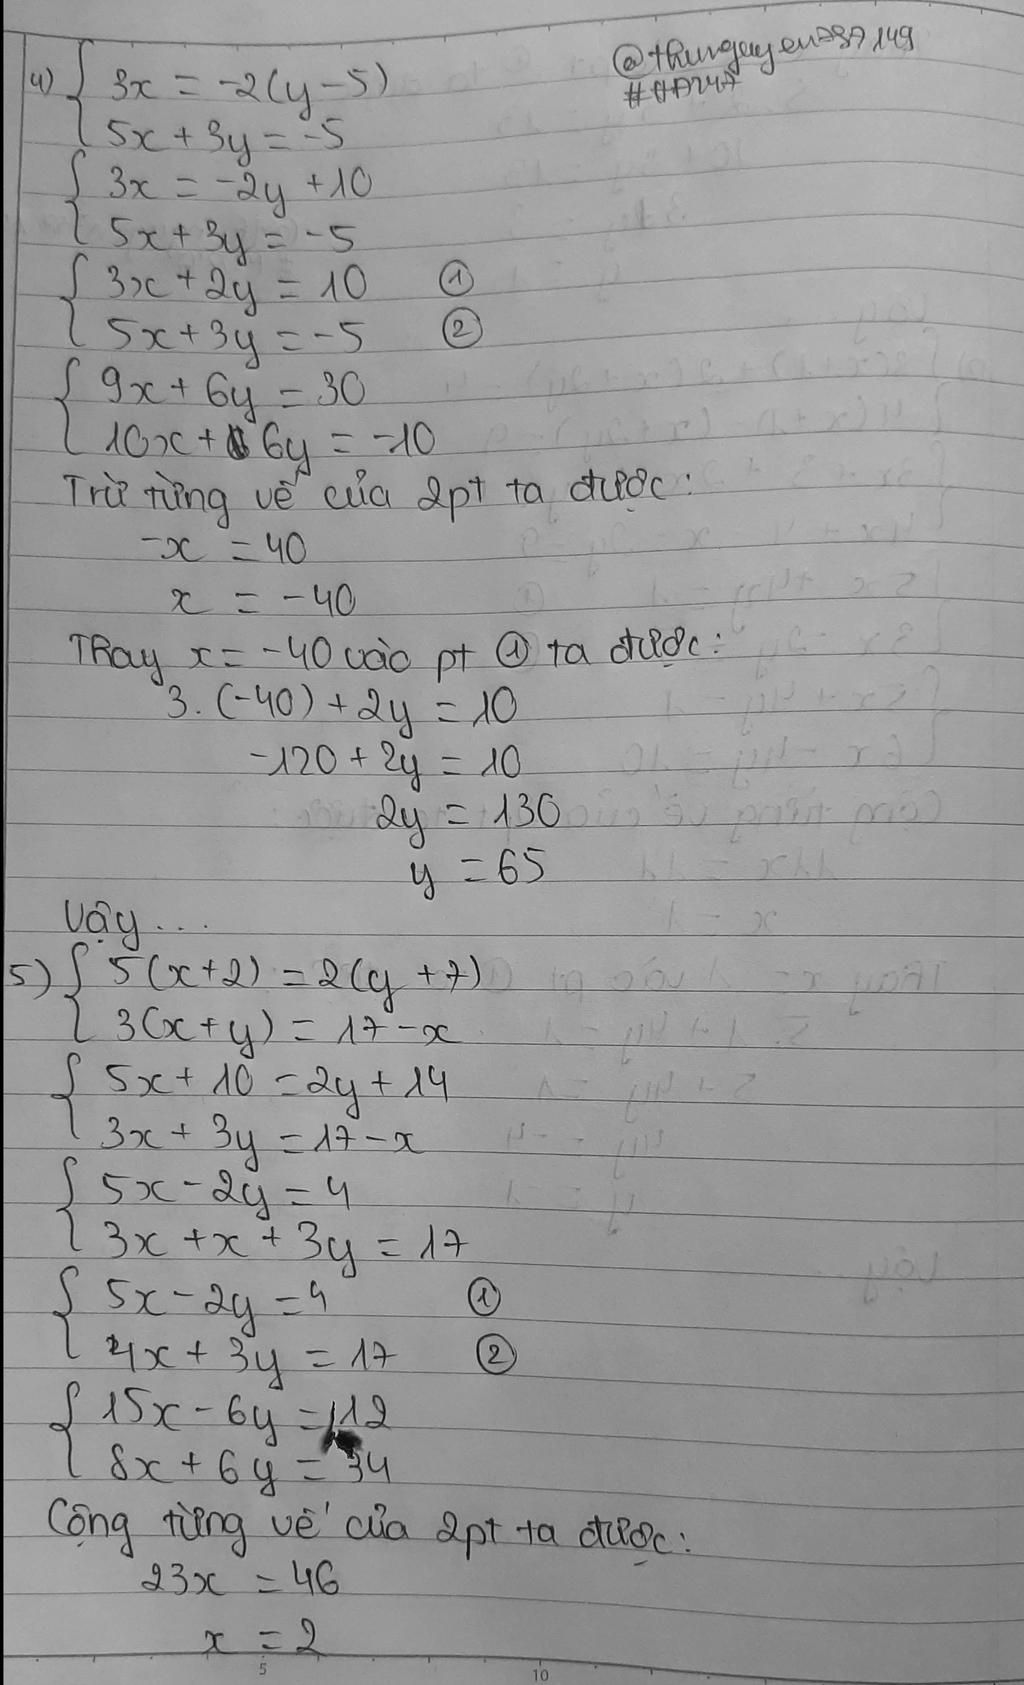 @thunguyen787149
#HA247
4) { 3x = -2(y - 5)
5x + 3y = -5
{ 3x = -2y + 10
5x + 3y = -5
{ 3x + 2y = 10 ①
5x + 3y = -5 ②
{ 9x + 6y = 30
10x + 6y = -10
Trừ từng vế của 2pt ta được:
-x = 40
x = -40
Thay x = -40 vào pt ① ta được:
3. (-40) + 2y = 10
-120 + 2y = 10
2y = 130
y = 65
Vậy ...
5) { 5(x+2) = 2(y+7)
3(x+y) = 17 - x
{ 5x + 10 = 2y + 14
3x + 3y = 17 - x
{ 5x - 2y = 4
3x + x + 3y = 17
{ 5x - 2y = 4 ①
4x + 3y = 17 ②
{ 15x - 6y = 12
8x + 6y = 34
Cộng từng vế của 2pt ta được:
23x = 46
x = 2
5 10